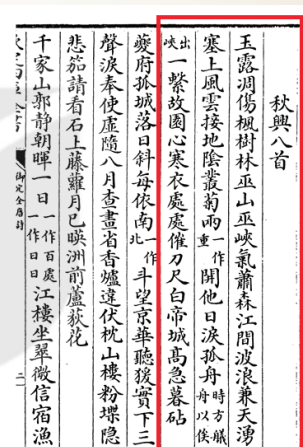 秋興八首
玉露凋傷楓樹林巫山巫峽氣蕭森江間波浪兼天湧
塞上風雲接地陰叢菊兩一作重開他日淚孤舟時方艤舟以俟
出峽一繫故園心寒衣處處催刀尺白帝城高急暮砧
夔府孤城落日斜每依南一作北斗望京華聽猿實下三
聲淚奉使虛隨八月查畫省香爐違伏枕山樓粉堞隱
悲笳請看石上藤蘿月已暎洲前蘆荻花
千家山郭靜朝暉一日一作百處一作日日江樓坐翠微信宿漁
御定全唐詩